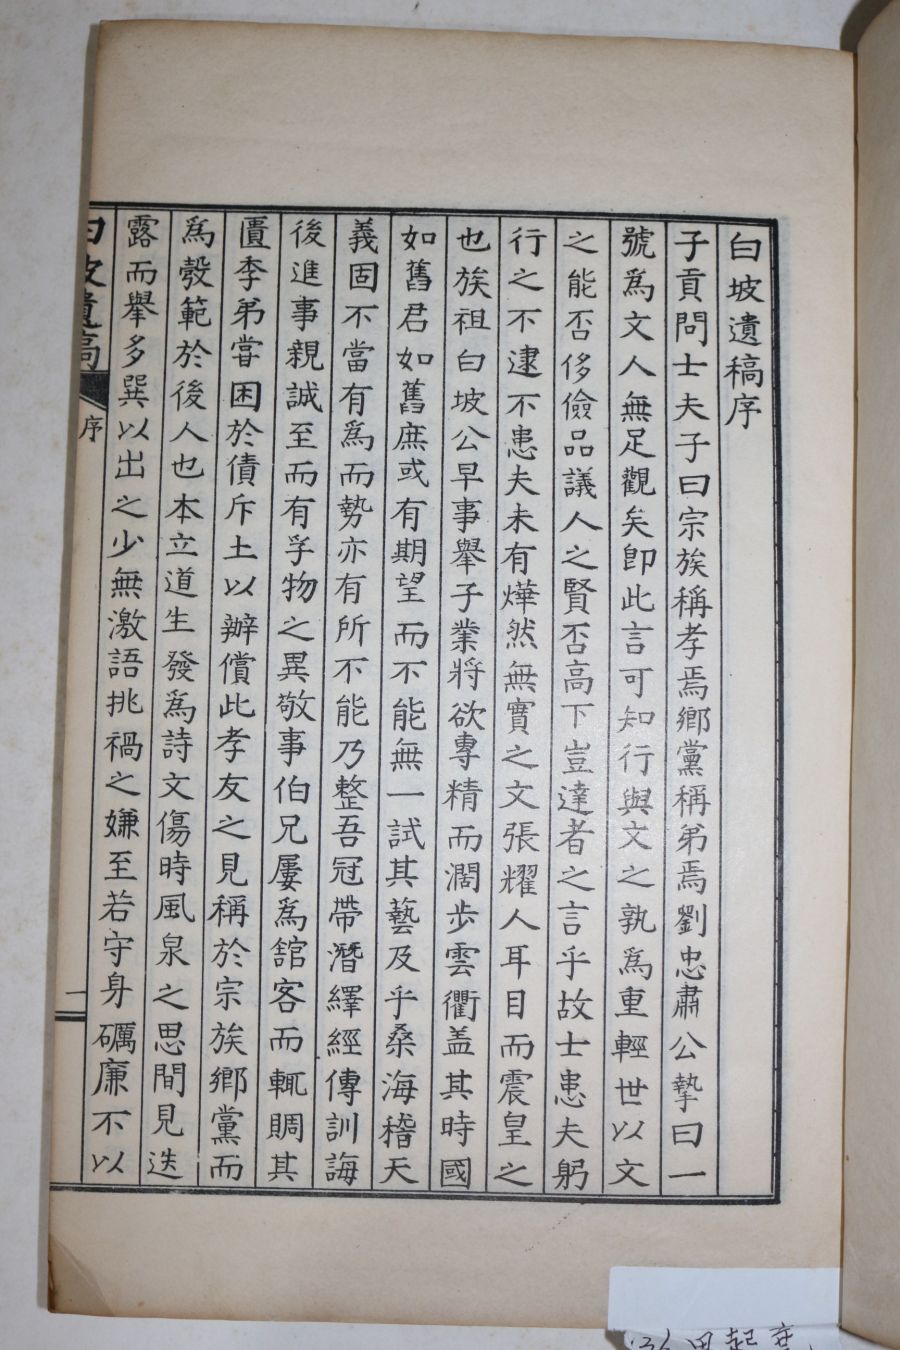 白坡遺稿序
子貢問士夫子曰宗族稱孝焉鄉黨稱弟焉劉忠肅公摯曰一
號爲文人無足觀矣卽此言可知行與文之孰爲重輕世以文
之能否侈儉品議人之賢否高下豈達者之言乎故士患夫躬
行之不逮不患夫未有燁然無實之文張耀人耳目而震皇之
也族祖白坡公早事擧子業將欲專精而濶步雲衢盖其時國
如舊君如舊庶或有期望而不能無一試其藝及乎桑海稽天
義固不當有爲而勢亦有所不能乃整吾冠帶潛繹經傳訓誨
後進事親誠至而有孚物之異敬事伯兄屢爲舘客而輒賙其
匱季弟嘗困於債斥土以辦償此孝友之見稱於宗族鄉黨而
爲彀範於後人也本立道生發爲詩文傷時風泉之思間見迭
露而擧多巽以出之少無激語挑禍之嫌至若守身礪廉不以
白坡遺稿
序
一
田起